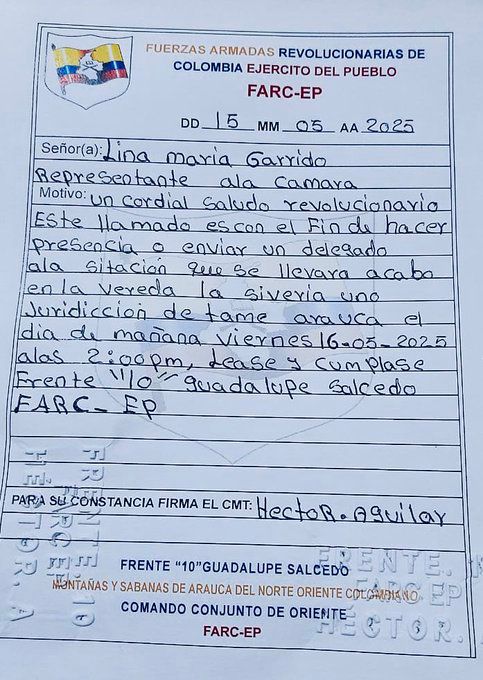 FUERZAS ARMADAS REVOLUCIONARIAS DE
COLOMBIA EJERCITO DEL PUEBLO
FARC-EP
DD 15 MM 05 AA 2025
Señor(a): Lina maria Garrido
Representante ala camara
Motivo: un cordial saludo revolucionario
Este llamado es con el Fin de hacer
presencia o enviar un delegado
ala sitación que se llevara acabo
en la vereda la siveria uno
Juridiccion de tame arauca el
dia de mañana viernes 16-05-2025
alas 2:00pm, Lease y cumplase
Frente "10" guadalupe salcedo
FARC-EP
PARA SU CONSTANCIA FIRMA EL CMT: HectoR. Aguilar
FRENTE "10" GUADALUPE SALCEDO
MONTAÑAS Y SABANAS DE ARAUCA DEL NORTE ORIENTE COLOMBIANO
COMANDO CONJUNTO DE ORIENTE
FARC-EP
FRENTE. 10
FARC EP
HECTOR. A
FRENTE.
FARC EP
HECTOR.